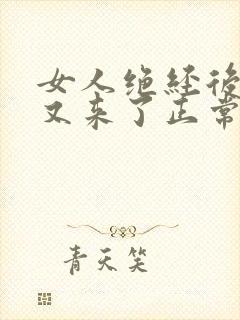 女人绝经後
又来了正常
青天笑